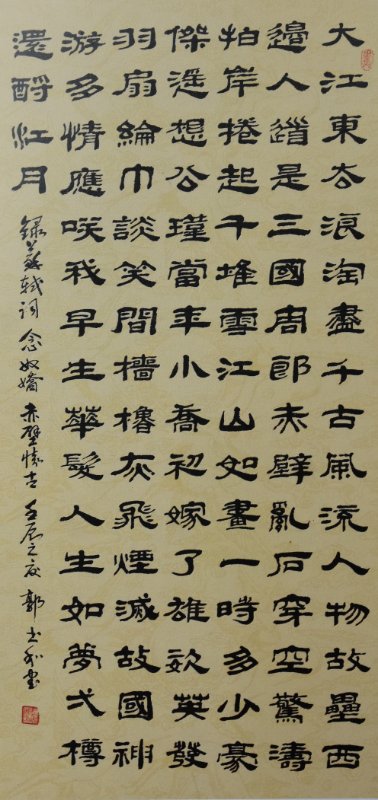 大江東去浪淘盡千古風流人物故壘西
邊人道是三國周郎赤壁亂石穿空驚濤
拍岸捲起千堆雪江山如畫一時多少豪
傑遙想公瑾當年小喬初嫁了雄姿英發
羽扇綸巾談笑間檣櫓灰飛煙滅故國神
游多情應咲我早生華髮人生如夢弌樽
還酹江月
錄蘇軾詞念奴嬌赤壁懷古壬辰之 郭 書